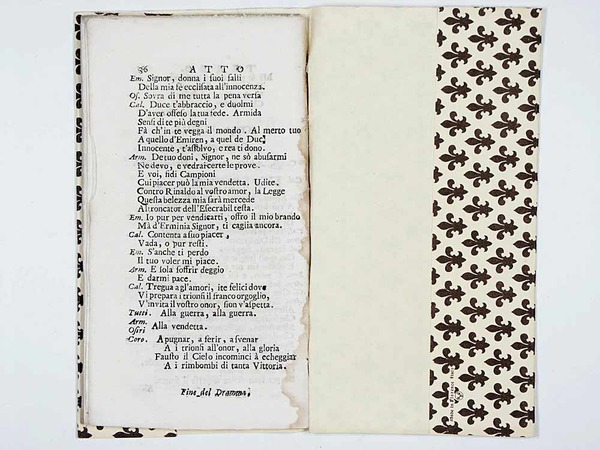 36 ATTO
Em. Signor, donna i suoi falli
Della mia fè ecclisata all'innocenza.
Os. Sovra di me tutta la pena versa
Cal. Duce t'abbraccio, e duolmi
D'aver offeso la tua fede. Armida
Sensi di te più degni
Fà ch'in te vegga il mondo. Al merto tuo
A quello d'Emiren, a quel de Duce
Innocente, t'assolvo, e rea ti dono.
Arm. De tuo doni, Signor, ne sò abusarmi
Ne devo, e vedrai certe le prove.
E voi, fidi Campioni
Cui piacer può la mia vendetta. Udite.
Contro Rinaldo al vostro amor, la Legge
Questa belezza mia sarà mercede
Al troncator dell'Esecrabil testa.
Em. Io pur per vendicarti, offro il mio brando
Mà d'Erminia Signor, ti caglia ancora.
Cal. Contenta a suo piacer,
Vada, o pur resti.
Em. S'anche ti perdo
Il tuo voler mi piace.
Arm. E sola soffrir deggio
E darmi pace.
Cal. Tregua agl'amori, ite felici dove
Vi prepara i trionfi il franco orgoglio,
V'invita il vostro onor, sion v'aspetta.
Tutti. Alla guerra, alla guerra.
Arm.
Osiri Alla vendetta.
Coro. A pugnar, a ferir, a svenar
A i trionfi all'onor, alla gloria
Fausto il Cielo incominci à echeggiar
A i rimbombi di tanta Vittoria.
Fine del Dramma.